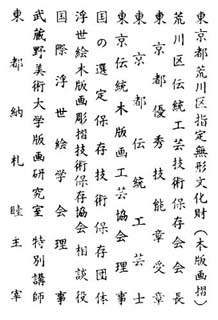 東京都荒川区指定無形文化財（木版画摺）
荒川区伝統工芸技術保存会会長
東京都優秀技能章受章
東京都伝統工芸士
東京伝統木版画工芸協会理事
国の選定保存技術保存団体
浮世絵木版画彫摺技術保存協会相談役
国際浮世絵学会理事
武蔵野美術大学版画研究室　特別講師
東都納札睦主宰